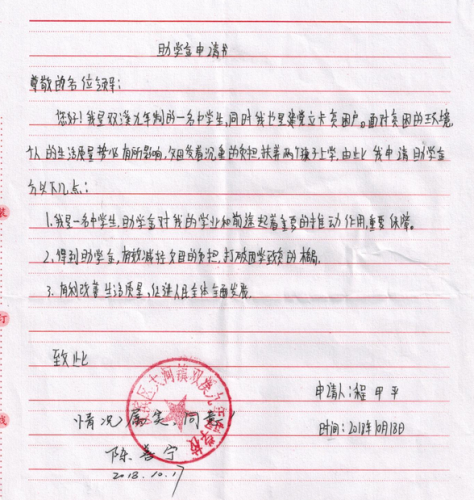 助学金申请书
尊敬的各位领导：
您好！我是双溪九年制的一名中学生，同时我也是建档立卡贫困户。面对贫困的环境，
个人的生活质量势必有所影响，父母负着沉重的负担，扶养两个孩子上学，由此我申请助学金
有以下几点：
1.我是一名中学生，助学金对我的学业和前途起着重要的推动作用，重要保障。
2.得到助学金，有效减轻父母的负担，打破因学致贫的格局。
3.有利改善生活质量，促进人民全体全面发展。
致此
情况属实，同意！
陈善宁
2018.10.17
申请人：程甲平
时间：2018年10月18日
区大河镇双溪九年制学校